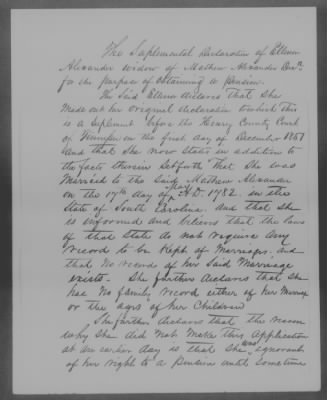 The Suplemental Declaration of Elleven
Alexander widow of Mathew Alexander Decd.
for the purpose of obtaining a Pension.
The Said Elleven declares That She
Made out her Original declaration to which this
is a Suplement before the Henry County Court
of on the first day of December 1851
And that She now States in addition to
the facts therein Setforth That She was
Married to the Said Mathew Alexander
on the 17th day of A.D. 1782. in the
State of South Carolina. And that she
is informed and believes that the laws
of that State do not require Any
record to be Kept of Marriages. And
that No record of her Said Marriage
exists. She further declares that she
has No family record either of her Marriage
or the ages of her Children
She further declares that the reason
why She did Not Make this Application
at an earlier day is that She was ignorant
of her right to a Pension until Sometime